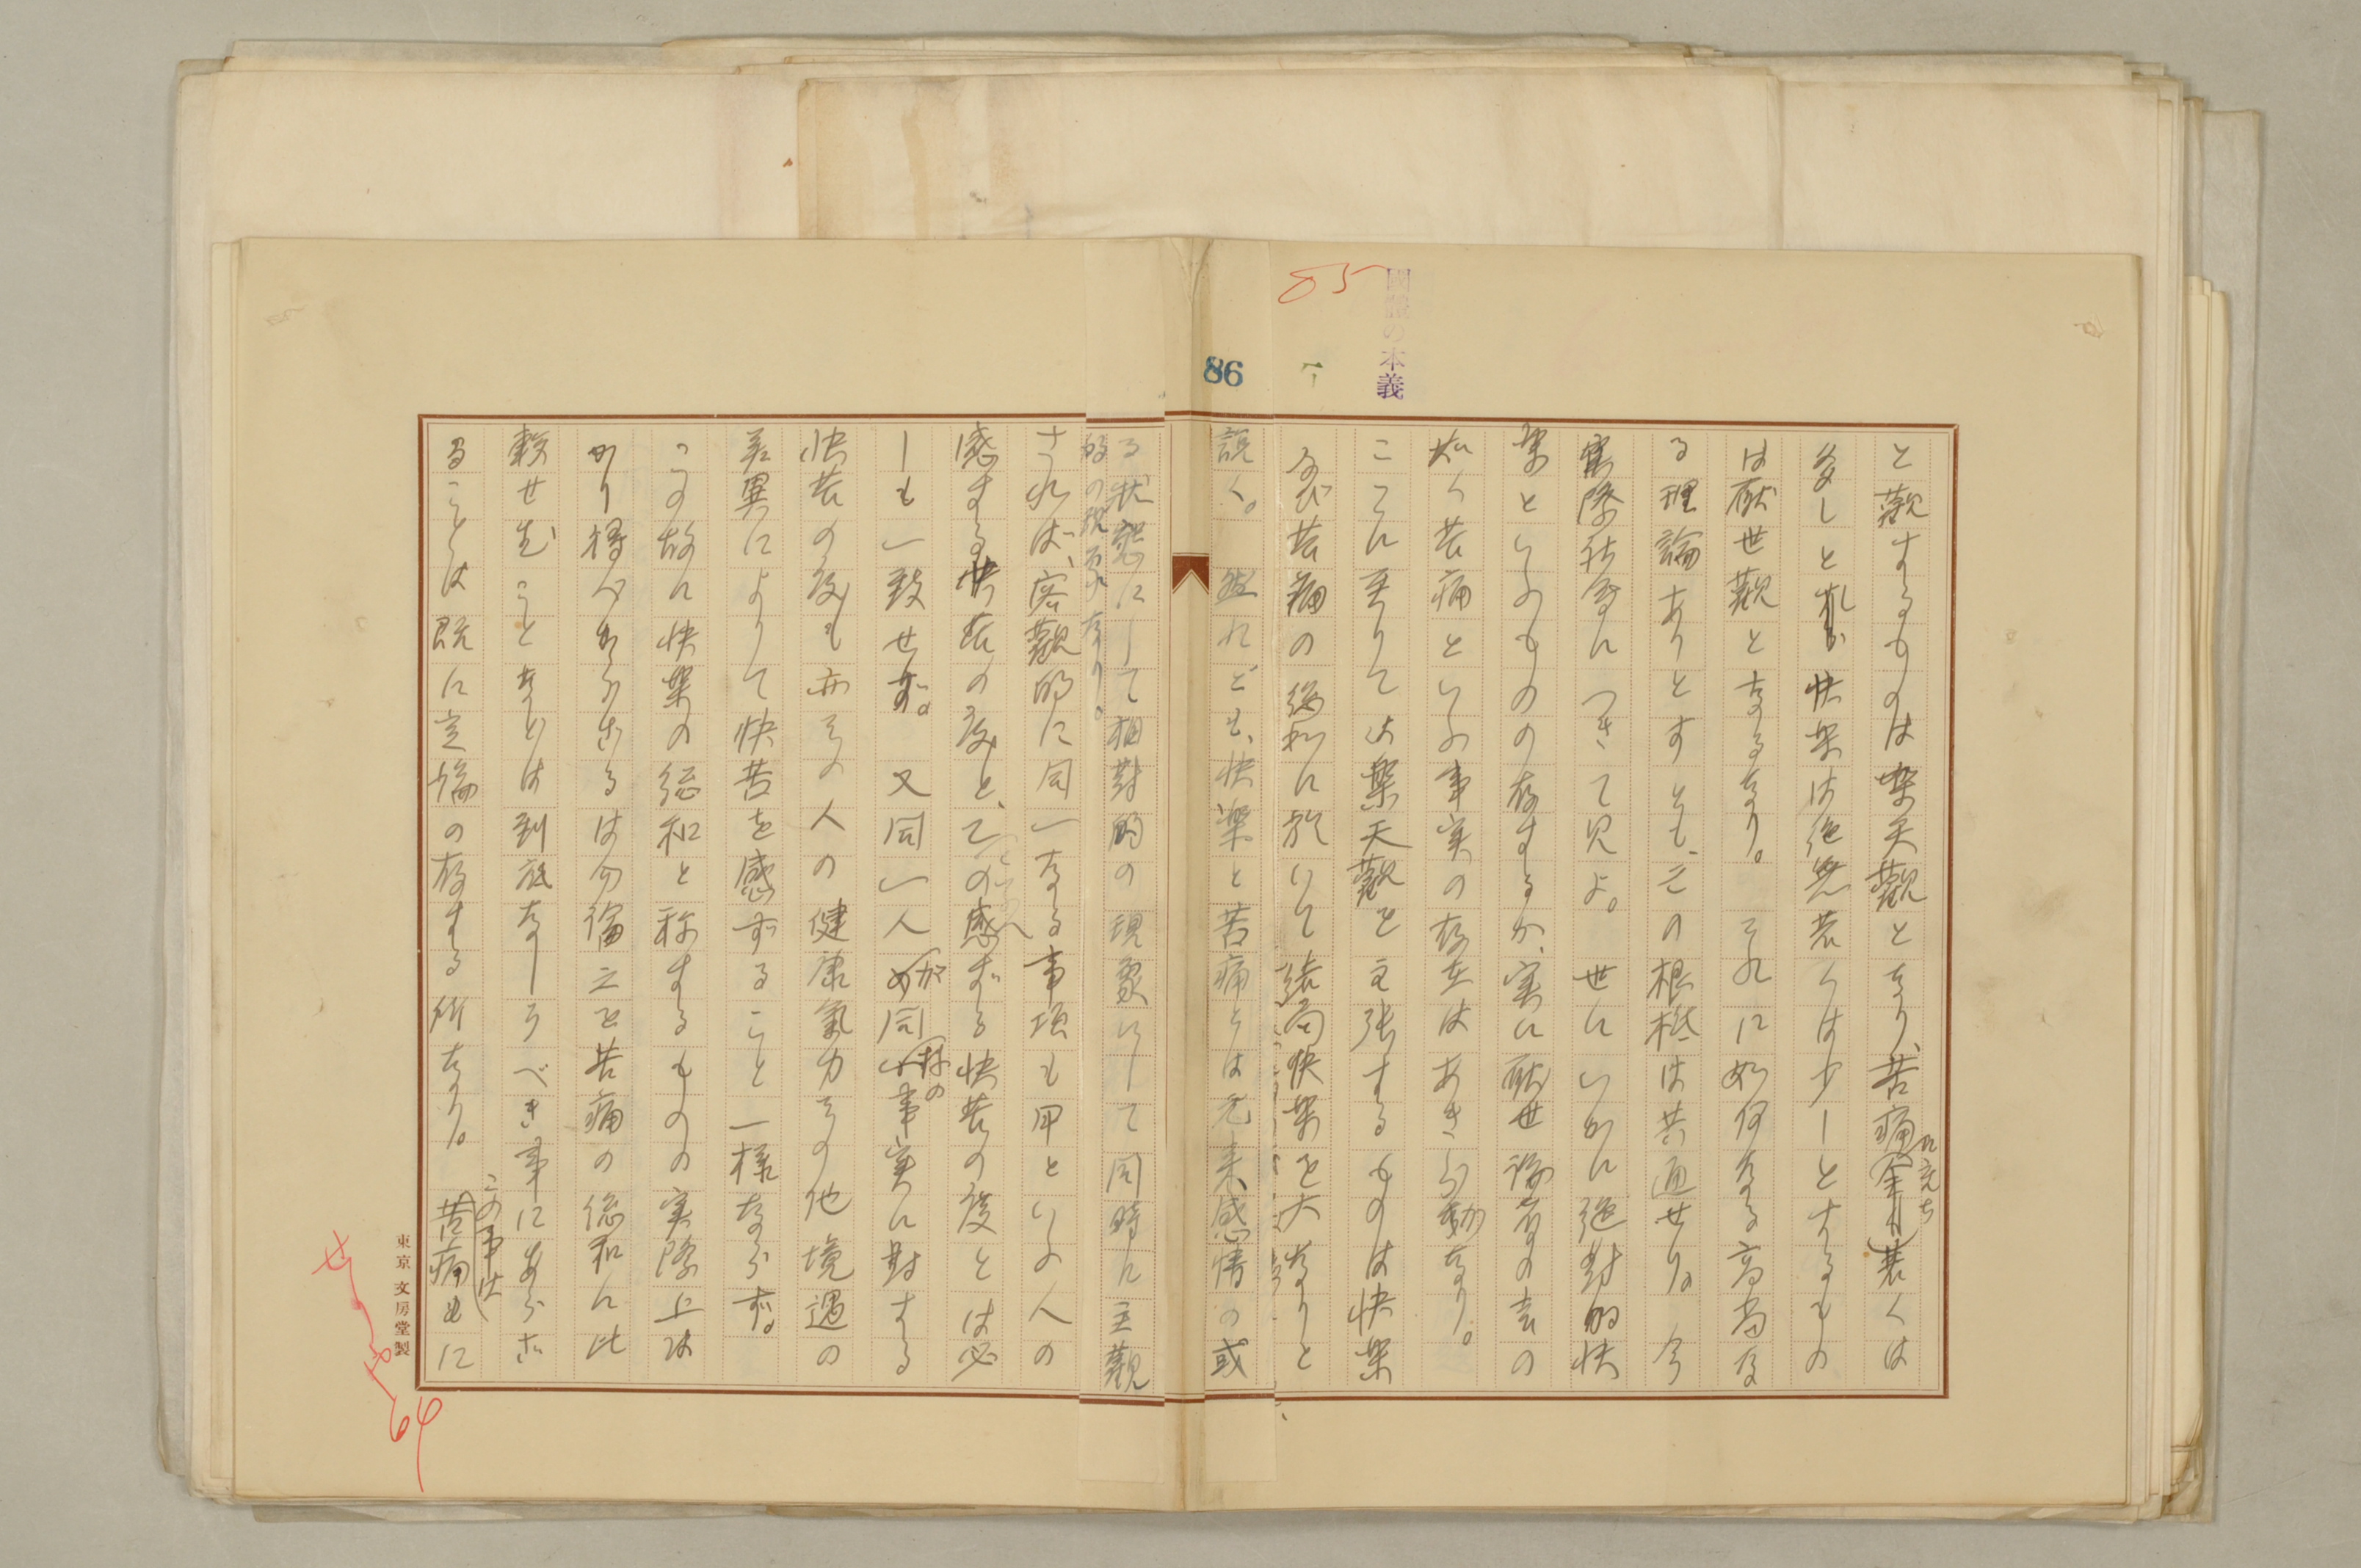 國體の本義
85
86
と觀するものは樂天觀となり、苦痛に充ち若くは
多しとし、快樂は絶無若くは少しとするもの
は厭世觀となるなり。それに如何なる高尚な
る理論ありとすとも、その根柢は共通せり。今
實際社會につきて見よ。世にいかに絶對的快
樂といふものの存するか、実に厭世論者の言の
如く苦痛といふ事実の存在はあきらか
ここに至りて は樂天觀を主張するものは快樂
及び苦痛の総和に於いて結局快樂を大なりと
説く。然れども、快樂と苦痛とは元来感情の或
る状態にして相對的の現象にして同時に主觀
的の現象なり。
されば、客觀的に同一なる事項も甲といふ人の
感ずる快苦の度と、乙の感ずる快苦の度とは必
しも一致せず。又同一人が同様の事実に對する
快苦の度も亦その人の健康氣力その他境遇の
差異によりて快苦を感ずること一様ならず。
この故に快樂の総和と称するものの実際上は
かり得べからざるは勿論之を苦痛の総和に比
較せむことなどは到底なしうべき事にあらざ
ることは既に定論の存する所なり。この事は苦痛
東京 文房堂製
64